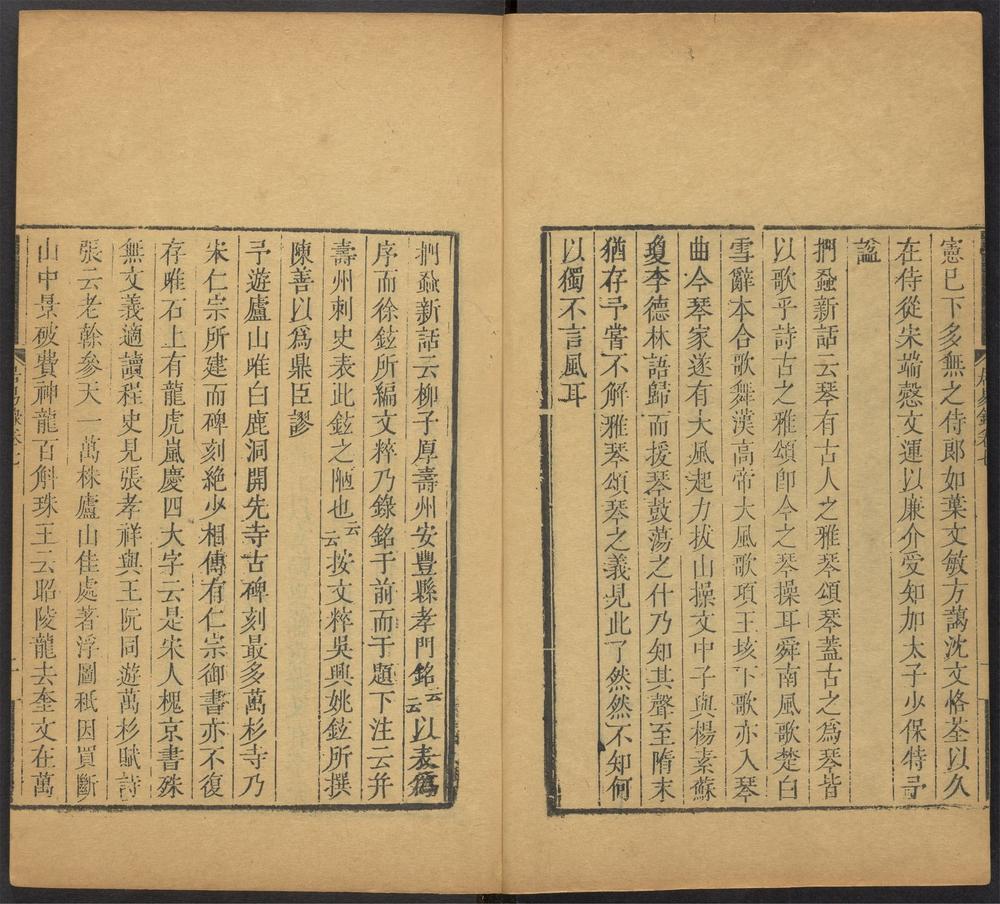 憲已下多無之侍郎如葉文敏方藹沈文恪荃以久
在侍從朱端慤文運以廉介受知加太子少保特予
諡
捫蝨新話云琴有古人之雅琴頌琴蓋古之爲琴皆
以歌乎詩古之雅頌卽今之琴操耳舜南風歌楚白
雪辭本合歌舞漢高帝大風歌項王垓下歌亦入琴
曲今琴家遂有大風起力拔山操文中子與楊素蘇
瓊李德林語歸而援琴鼓蕩之什乃知其聲至隋末
猶存予嘗不解雅琴頌琴之義見此了然然不知何
以獨不言風耳
捫蝨新話云柳子厚壽州安豐縣孝門銘云云以表爲
序而徐鉉所編文粹乃錄銘于前而于題下注云并
壽州刺史表此鉉之陋也云云按文粹吳興姚鉉所撰
陳善以爲鼎臣謬
予遊廬山唯白鹿洞開先寺古碑刻最多萬杉寺乃
宋仁宗所建而碑刻絶少相傳有仁宗御書亦不復
存唯石上有龍虎嵐慶四大字云是宋人槐京書殊
無文義適讀桯史見張孝祥與王阮同遊萬杉賦詩
張云老榦參天一萬株廬山佳處著浮圖秪因買斷
山中景破費神龍百斛珠王云昭陵龍去奎文在萬
居易錄卷七